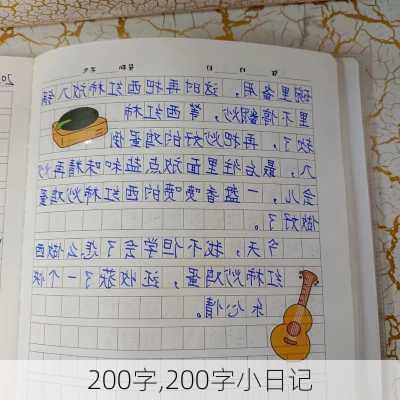 碗里备用。这时再把西红柿放入锅
里不停翻炒,等西红柿
软了,再把炒好的鸡蛋倒
入,最后往里面放点盐和味精再炒
会儿,一盘香喷喷的西红柿炒鸡蛋
做好了。
今天,我不但学会了怎么做西
红柿炒鸡蛋,还收获了一个快
乐心情。
200字,200字小日记